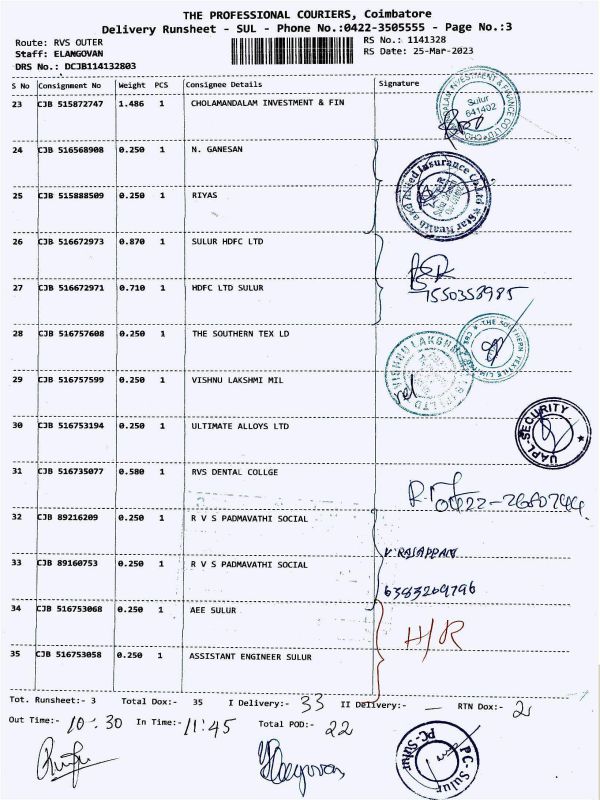 THE PROFESSIONAL COURIERS, Coimbatore
Delivery Runsheet - SUL - Phone No.:0422-3505555 - Page No.:3
Route: RVS OUTER RS No.: 1141328
Staff: ELANGOVAN RS Date: 25-Mar-2023
DRS No.: DCJB114132803
S No Consignment No Weight PCS Consignee Details Signature
23 CJB 515872747 1.486 1 CHOLAMANDALAM INVESTMENT & FIN
Sulur
641402
24 CJB 516568908 0.250 1 N. GANESAN
25 CJB 515888509 0.250 1 RIYAS
26 CJB 516672973 0.870 1 SULUR HDFC LTD
27 CJB 516672971 0.710 1 HDFC LTD SULUR
7550358985
28 CJB 516757608 0.250 1 THE SOUTHERN TEX LD
29 CJB 516757599 0.250 1 VISHNU LAKSHMI MIL
30 CJB 516753194 0.250 1 ULTIMATE ALLOYS LTD
UAPL-SECURITY
31 CJB 516735077 0.580 1 RVS DENTAL COLLGE
32 CJB 89216209 0.250 1 R V S PADMAVATHI SOCIAL
33 CJB 89160753 0.250 1 R V S PADMAVATHI SOCIAL
6383269796
34 CJB 516753068 0.250 1 AEE SULUR
H/R
35 CJB 516753058 0.250 1 ASSISTANT ENGINEER SULUR
Tot. Runsheet:- 3 Total Dox:- 35 I Delivery:- 33 II Delivery:- — RTN Dox:- 2
Out Time:- 10-30 In Time:- 11:45 Total POD:- 22
PC-Sulur
PC-Sulur